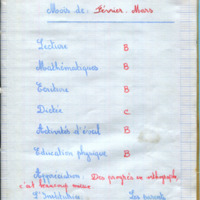 Mois de : Février. Mars
Lecture B
Mathématiques B
Ecriture B
Dictée C
Activités d'éveil B
Education physique B
Appréciation : Des progrès en orthographe,
c'est beaucoup mieux
L'Institutrice Les parents